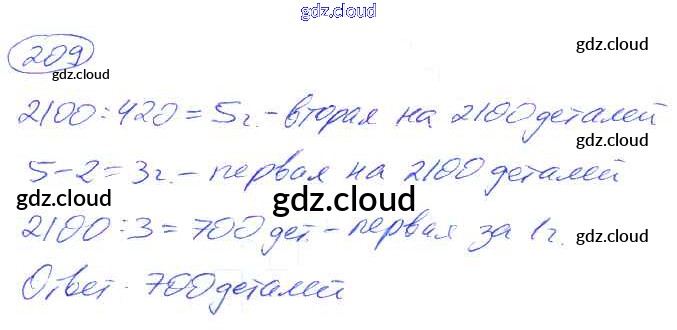 gdz.cloud
gdz.cloud
209
gdz.cloud
2100:420=5г.-вторая на 2100 деталей
gdz.cloud
5-2=3г.-первая на 2100 деталей
gdz.cloud
gdz.cloud
2100:3=700 дет.-первая за 1г.
gdz.cloud
gdz.cloud
Ответ. 700 деталей